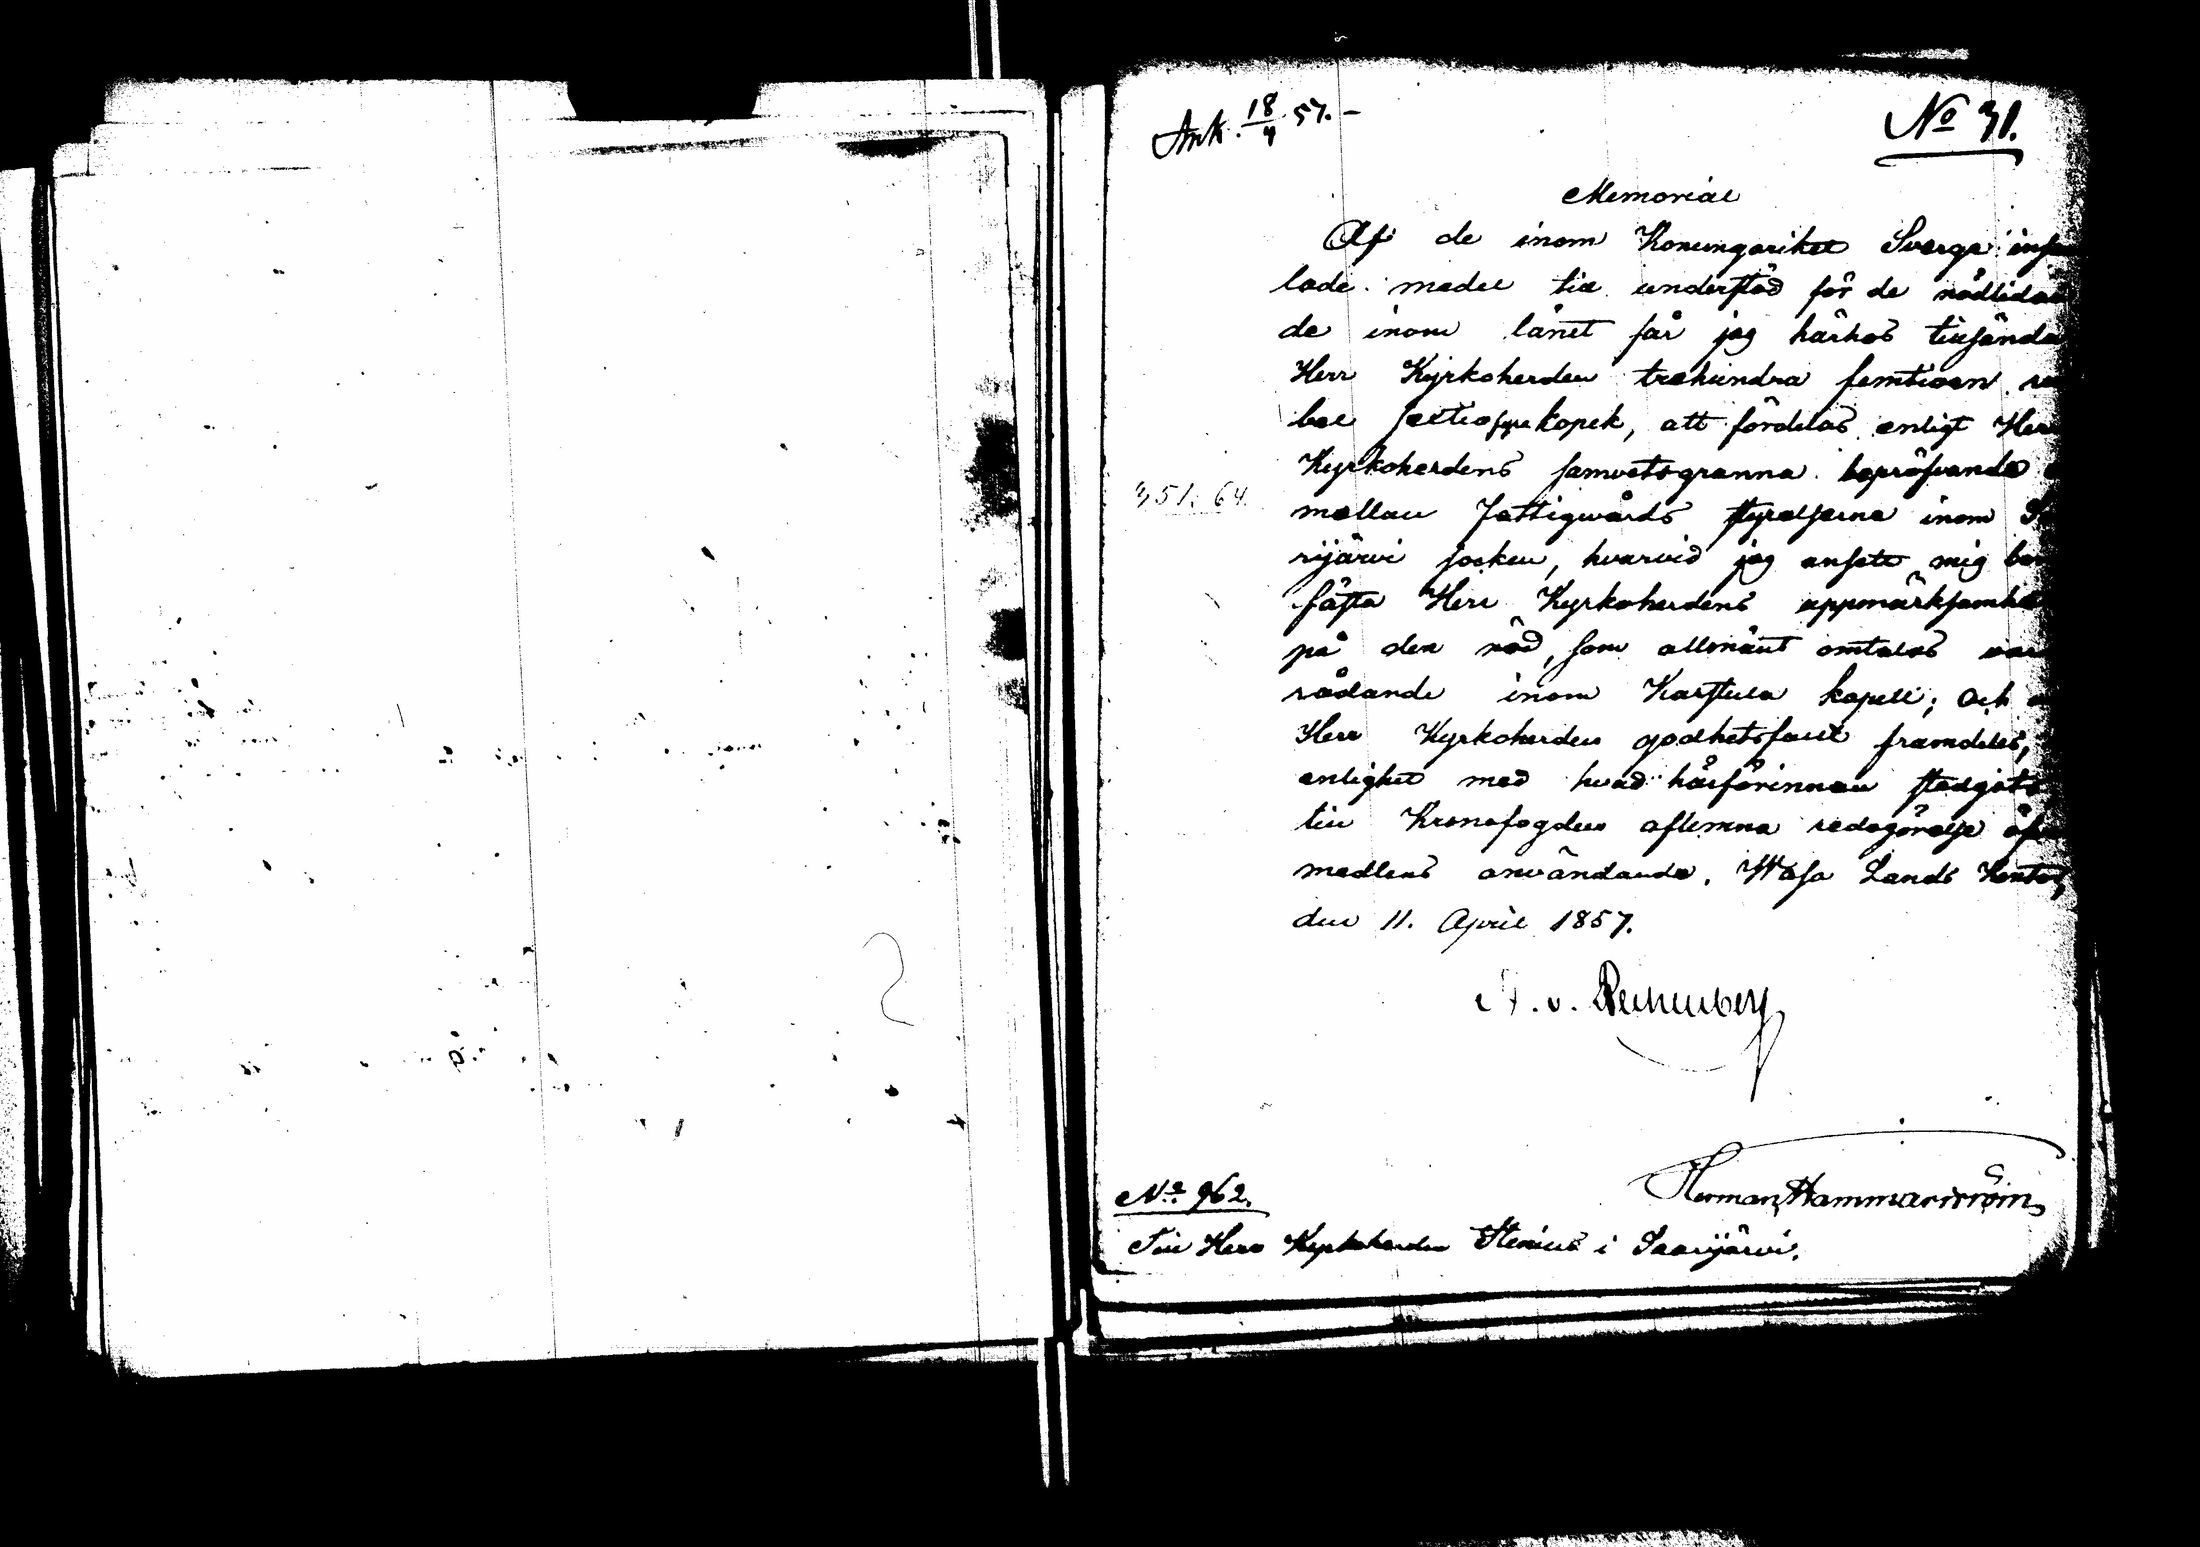 Ank. 18/4 57. –
No 31.
Memorial
Af de inom Konungariket Sverge insam
lade medel till understöd för de nödlidan
de inom länet får jag härhos tillsända
Herr Kyrkoherden trehundra femtioen ru
bel sextiofyra kopek, att fördelas enligt Herr
Kyrkoherdens samvetsgranna bepröfvande
351: 64.
mellan Fattigvårds styrelserna inom Sa
rijärvi socken, hvarvid jag ansett mig bö
fästa Herr Kyrkoherdens uppmärksamhet
på den nöd, som allmänt omtalas vara
rådande inom Karstula kapell; och
Herr Kyrkoherden godhetsfullt framdeles,
enlighet med hvad härförinnan stadgats,
till Kronofogden aflemna redogörelse öfver
medlens användande. Wasa Lands Kontor,
den 11. April 1857.
A. v. Rechenberg
Herman Hammarström
No 962.
Till Herr Kyrkoherden Stenius i Saarijärvi.